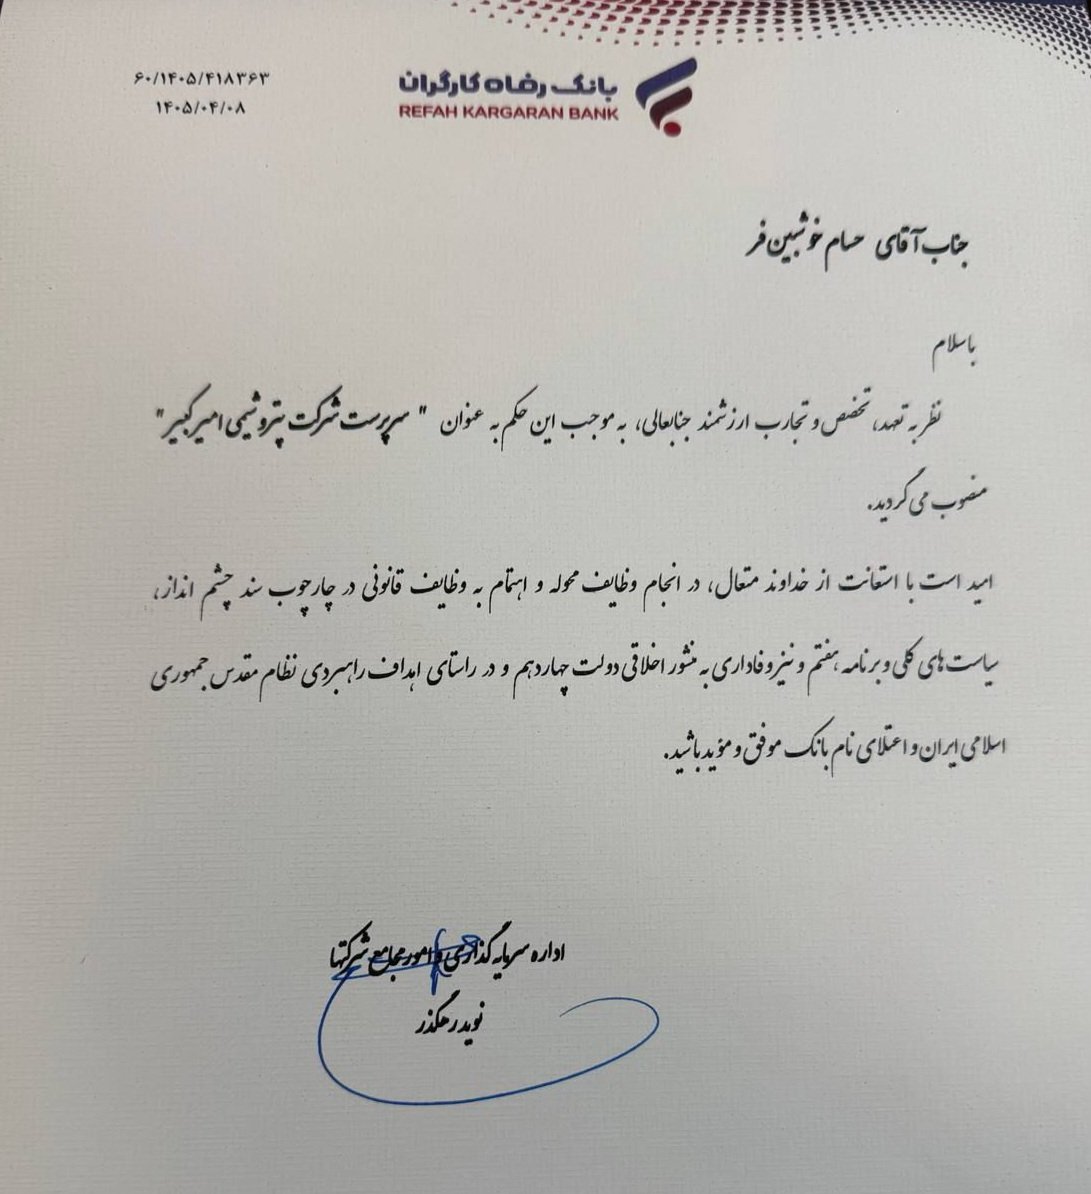 بانک رفاه کارگران
REFAH KARGARAN BANK
۶۰/۱۴۰۵/۴۱۸۳۶۳
۱۴۰۵/۰۴/۰۸
جناب آقای حسام خوشبین فر
باسلام
نظر به تعهد، تخصص و تجارب ارزشمند جنابعالی، به موجب این حکم به عنوان " سرپرست شرکت پتروشیمی امیرکبیر "
منصوب می گردید.
امید است با استعانت از خداوند متعال، در انجام وظایف محوله و اهتمام به وظایف قانونی در چارچوب سند چشم انداز،
سیاست های کلی و برنامه هفتم و نیز وفاداری به منشور اخلاقی دولت چهاردهم و در راستای اهداف راهبردی نظام مقدس جمهوری
اسلامی ایران و اعتلای نام بانک موفق و مؤید باشید.
اداره سرمایه گذاری و امور مجامع شرکتها
نوید رهگذر